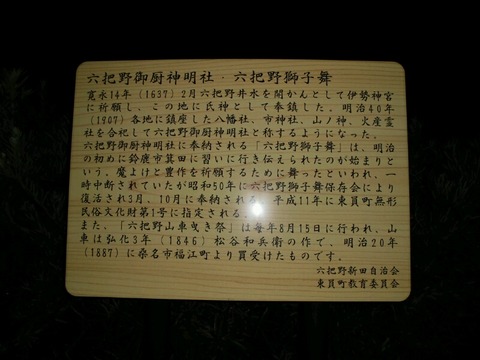 六把野御厨神明社・六把野獅子舞
寛永14年(1637)2月六把野井水を開かんとして伊勢神宮
に祈願し、この地に氏神として奉鎮した。明治40年
(1907)各地に鎮座した八幡社、市神社、山ノ神、火産霊
社を合祀して六把野御厨神明社と称するようになった。
六把野御厨神明社に奉納される「六把野獅子舞」は、明治
の初めに鈴鹿市箕田に習いに行き伝えられたのが始まりと
いう。魔よけと豊作を祈願するために舞ったといわれ、一
時中断されていたが昭和50年に六把野獅子舞保存会により
復活され3月、10月に奉納される。平成11年に東員町無形
民俗文化財第1号に指定される。
また、「六把野山車曳き祭」は毎年8月15日に行われ、山
車は弘化3年(1846)松谷和兵衛の作で、明治20年
(1887)に桑名市福江町より買受けたものです。
六把野新田自治会
東員町教育委員会